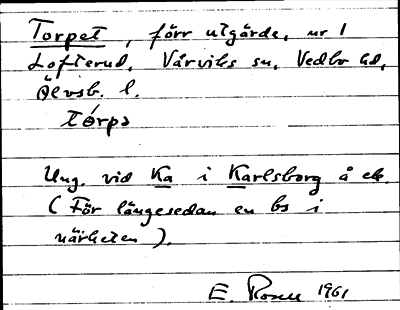 Torpet, förr utgärde, nr 1
Lofterud, Värviks sn, Vedbo hd,
Älvsb. l.
tórpə
Ung. vid Ka i Karlsborg å ek.
(För längesedan en bs i
närheten).
E. Rosell 1961